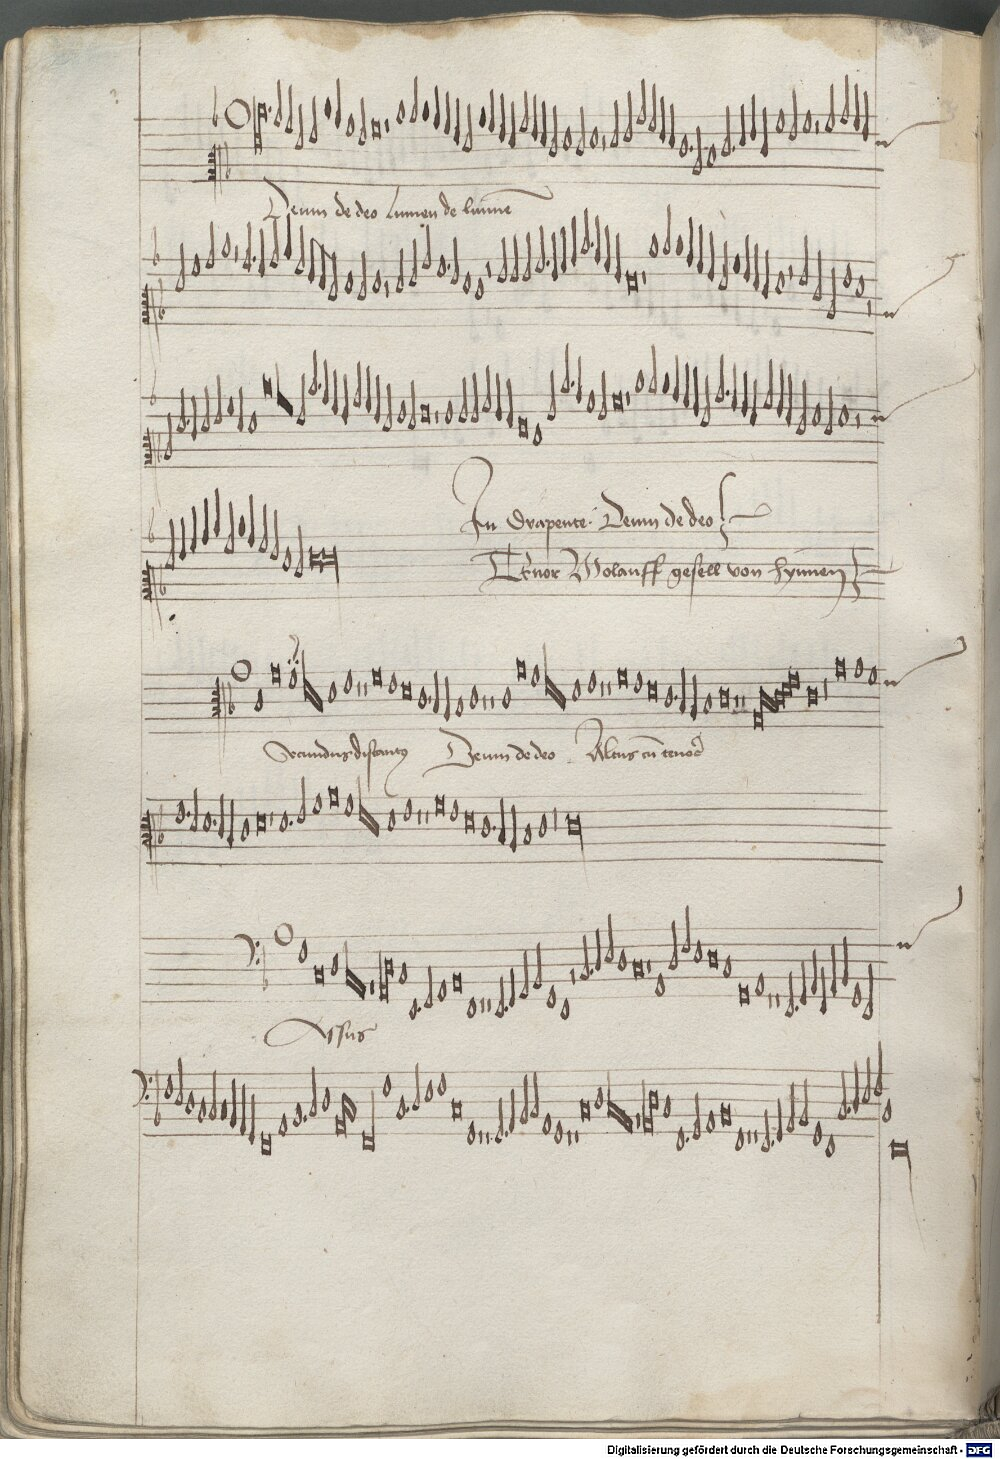 Deum de deo Lumen de lumine
In Diapente Deum de deo
Tenor Wolauff gesell von hynnen
Secundus discantus Deum de deo Altus cum tenore
Bassus
Digitalisierung gefördert durch die Deutsche Forschungsgemeinschaft - DFG